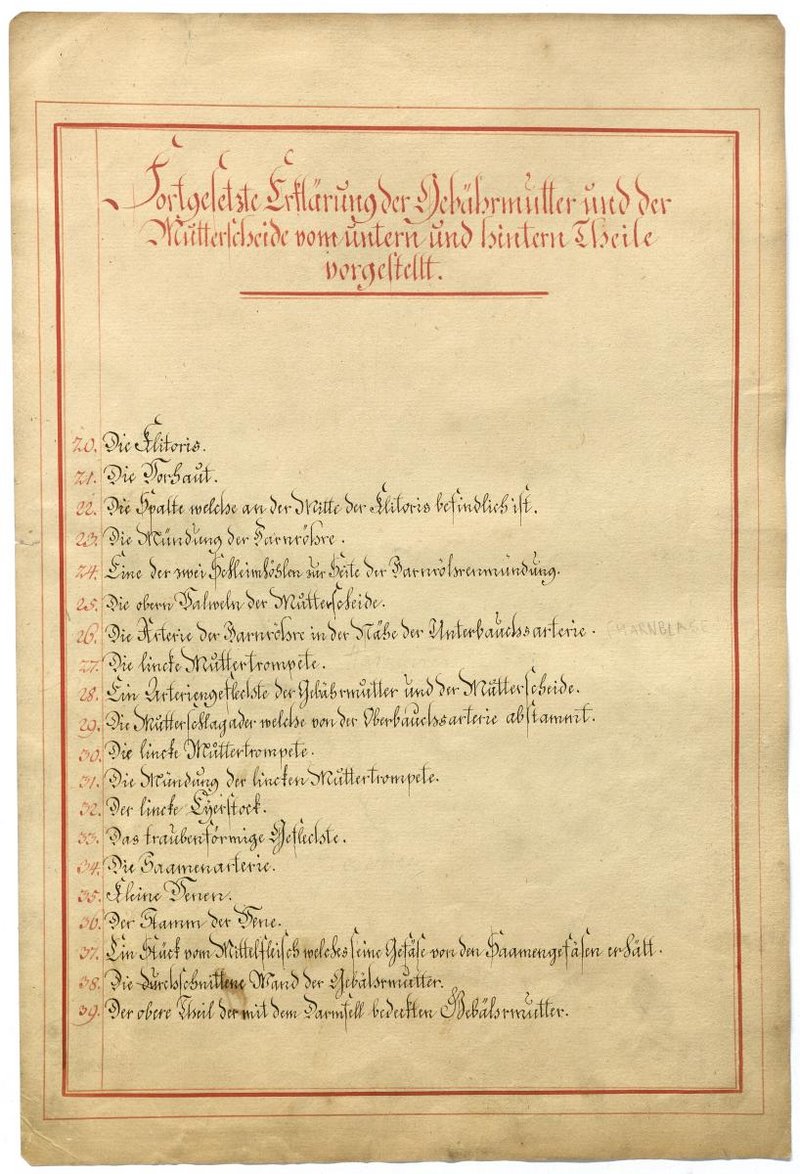 Fortgesetzte Erklärung der Gebährmutter und der
Mutterscheide vom untern und hintern Theile
vorgestellt.
20. Die Klitoris.
21. Die Vorhaut.
22. Die Spalte welche an der Mitte der Klitoris befindlich ist.
23. Die Mündung der Harnröhre.
24. Eine der zwei Schleimhöhlen zur Seite der Harnröhrenmündung.
25. Die obern Valweln der Mutterscheide.
26. Die Arterie der Harnröhre in der Nähe der Unterbauchsarterie. (HARNBLASE
27. Die lincke Muttertrompete.
28. Ein Arteriengeflechte der Gebährmutter und der Mutterscheide.
29. Die Mutterschlagader welche von der Oberbauchsarterie abstammt.
30. Die lincke Muttertrompete.
31. Die Mündung der lincken Muttertrompete.
32. Der lincke Eyerstock.
33. Das traubenförmige Geflechte.
34. Die Saamenarterie.
35. Kleine Venen.
36. Der Stamm der Vene.
37. Ein Stück vom Mittelfleisch welches seine Gefäse von den Saamengefäsen erhält.
38. Die durchschnittene Wand der Gebährmutter.
39. Der obere Theil der mit dem Darmfell bedeckten Gebährmutter.